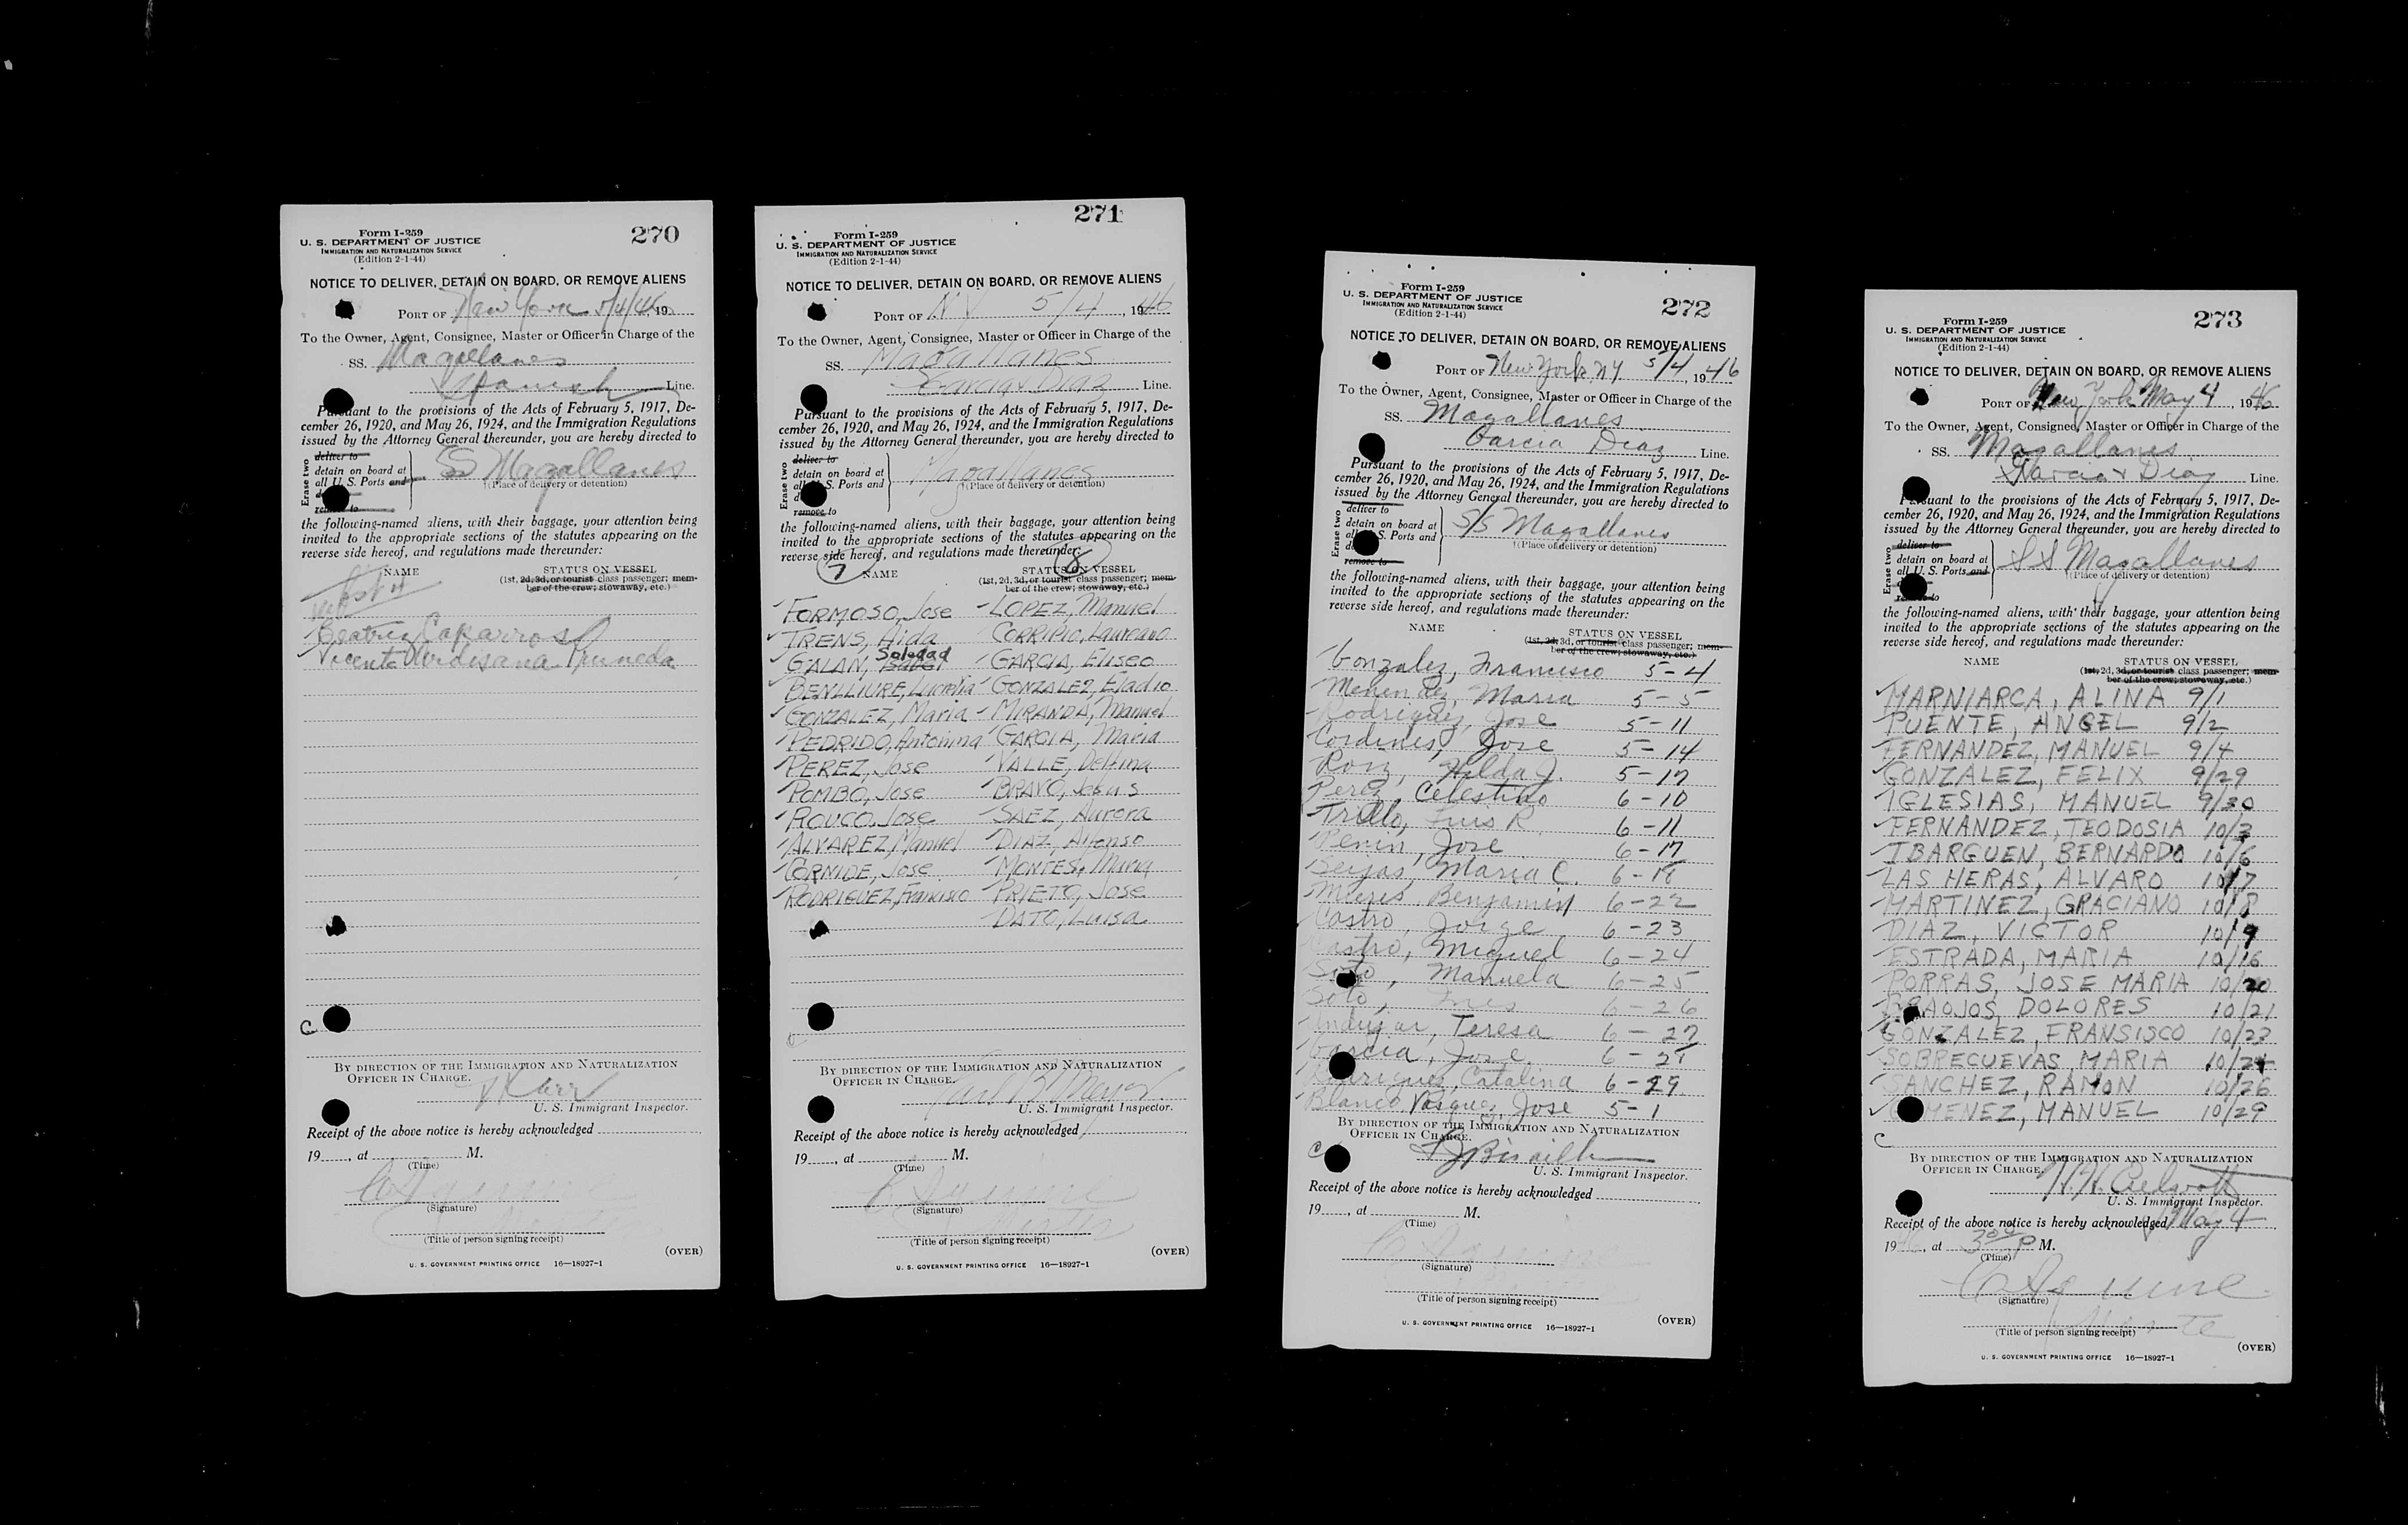 270
Form I-259
U. S. DEPARTMENT OF JUSTICE
IMMIGRATION AND NATURALIZATION SERVICE
(Edition 2-1-44)
NOTICE TO DELIVER, DETAIN ON BOARD, OR REMOVE ALIENS
PORT OF New York 5/4/46, 19
To the Owner, Agent, Consignee, Master or Officer in Charge of the
SS. Magallanes
Spanish Line.
Pursuant to the provisions of the Acts of February 5, 1917, De-
cember 26, 1920, and May 26, 1924, and the Immigration Regulations
issued by the Attorney General thereunder, you are hereby directed to
Erase two
deliver to
detain on board at
all U. S. Ports and
remove to
SS Magallanes
(Place of delivery or detention)
the following-named aliens, with their baggage, your attention being
invited to the appropriate sections of the statutes appearing on the
reverse side hereof, and regulations made thereunder:
NAME
STATUS ON VESSEL
(1st, 2d, 3d, or tourist class passenger; mem-
ber of the crew; stowaway, etc.)
Beatriz Caparros
Vicente Pruneda
C
BY DIRECTION OF THE IMMIGRATION AND NATURALIZATION
OFFICER IN CHARGE.
U. S. Immigrant Inspector.
Receipt of the above notice is hereby acknowledged
19, at M.
(Time)
(Signature)
(Title of person signing receipt)
(OVER)
U. S. GOVERNMENT PRINTING OFFICE 16—18927-1
271
Form I-259
U. S. DEPARTMENT OF JUSTICE
IMMIGRATION AND NATURALIZATION SERVICE
(Edition 2-1-44)
NOTICE TO DELIVER, DETAIN ON BOARD, OR REMOVE ALIENS
PORT OF N Y 5/4, 1946
To the Owner, Agent, Consignee, Master or Officer in Charge of the
SS. Magallanes
Garcia & Diaz Line.
Pursuant to the provisions of the Acts of February 5, 1917, De-
cember 26, 1920, and May 26, 1924, and the Immigration Regulations
issued by the Attorney General thereunder, you are hereby directed to
Erase two
deliver to
detain on board at
all U. S. Ports and
remove to
Magallanes
(Place of delivery or detention)
the following-named aliens, with their baggage, your attention being
invited to the appropriate sections of the statutes appearing on the
reverse side hereof, and regulations made thereunder:
7 NAME
8 STATUS ON VESSEL
(1st, 2d, 3d, or tourist class passenger; mem-
ber of the crew; stowaway, etc.)
FORMOSO, Jose - LOPEZ, Manuel
TRENS, Aida CORRIPIO, Laureano
GALAN, Soledad GARCIA, Eliseo
BENLLIURE, Lucrecia GONZALEZ, Eladio
GONZALEZ, Maria - MIRANDA, Manuel
PEDRIDO, Antonina GARCIA, Maria
PEREZ, Jose VALLE, Delfina
POMBO, Jose BRAVO, Jesus
ROUCO, Jose SAEZ, Aurora
ALVAREZ, Manuel DIAZ, Alfonso
CORNIDE, Jose MONTES, Maria
RODRIGUEZ, Francisco PRIETO, Jose
DATO, Luisa
BY DIRECTION OF THE IMMIGRATION AND NATURALIZATION
OFFICER IN CHARGE.
U. S. Immigrant Inspector.
Receipt of the above notice is hereby acknowledged
19, at M.
(Time)
(Signature)
Master
(Title of person signing receipt)
(OVER)
U. S. GOVERNMENT PRINTING OFFICE 16—18927-1
272
Form I-259
U. S. DEPARTMENT OF JUSTICE
IMMIGRATION AND NATURALIZATION SERVICE
(Edition 2-1-44)
NOTICE TO DELIVER, DETAIN ON BOARD, OR REMOVE ALIENS
PORT OF New York, NY 5/4, 1946
To the Owner, Agent, Consignee, Master or Officer in Charge of the
SS. Magallanes
Garcia Diaz Line.
Pursuant to the provisions of the Acts of February 5, 1917, De-
cember 26, 1920, and May 26, 1924, and the Immigration Regulations
issued by the Attorney General thereunder, you are hereby directed to
Erase two
deliver to
detain on board at
all U. S. Ports and
remove to
S/S Magallanes
(Place of delivery or detention)
the following-named aliens, with their baggage, your attention being
invited to the appropriate sections of the statutes appearing on the
reverse side hereof, and regulations made thereunder:
NAME
STATUS ON VESSEL
(1st, 2d, 3d, or tourist class passenger; mem-
ber of the crew; stowaway, etc.)
Gonzalez, Francisco 5-4
Menendez, Maria 5-5
Rodriguez, Jose 5-11
Jose 5-14
Hilda J. 5-17
Perez, Celestino 6-10
Trillo, Luis R. 6-11
Penin, Jose 6-17
Seijas, Maria C. 6-18
Benjamin 6-22
Castro, Jorge 6-23
Castro, Miguel 6-24
Soto, Manuela 6-25
Soto, Ines 6-26
Andujar, Teresa 6-27
Garcia, Jose 6-28
Rodriguez, Catalina 6-29
Blanco Vasquez, Jose 5-1
BY DIRECTION OF THE IMMIGRATION AND NATURALIZATION
OFFICER IN CHARGE.
C
U. S. Immigrant Inspector.
Receipt of the above notice is hereby acknowledged
19, at M.
(Time)
(Signature)
(Title of person signing receipt)
(OVER)
U. S. GOVERNMENT PRINTING OFFICE 16—18927-1
273
Form I-259
U. S. DEPARTMENT OF JUSTICE
IMMIGRATION AND NATURALIZATION SERVICE
(Edition 2-1-44)
NOTICE TO DELIVER, DETAIN ON BOARD, OR REMOVE ALIENS
PORT OF New York May 4, 1946
To the Owner, Agent, Consignee, Master or Officer in Charge of the
SS. Magallanes
Garcia & Diaz Line.
Pursuant to the provisions of the Acts of February 5, 1917, De-
cember 26, 1920, and May 26, 1924, and the Immigration Regulations
issued by the Attorney General thereunder, you are hereby directed to
Erase two
deliver to
detain on board at
all U. S. Ports and
remove to
SS Magallanes
(Place of delivery or detention)
the following-named aliens, with their baggage, your attention being
invited to the appropriate sections of the statutes appearing on the
reverse side hereof, and regulations made thereunder:
NAME
STATUS ON VESSEL
(1st, 2d, 3d, or tourist class passenger; mem-
ber of the crew; stowaway, etc.)
MARNIARCA, ALINA 9/1
PUENTE, ANGEL 9/2
FERNANDEZ, MANUEL 9/4
GONZALEZ, FELIX 9/29
IGLESIAS, MANUEL 9/30
FERNANDEZ, TEODOSIA 10/3
IBARGUEN, BERNARDO 10/6
LAS HERAS, ALVARO 10/7
MARTINEZ, GRACIANO 10/8
DIAZ, VICTOR 10/9
ESTRADA, MARIA 10/16
PORRAS, JOSE MARIA 10/20
BRAOJOS, DOLORES 10/21
GONZALEZ, FRANSISCO 10/23
SOBRECUEVAS, MARIA 10/24
SANCHEZ, RAMON 10/26
GIMENEZ, MANUEL 10/29
C
BY DIRECTION OF THE IMMIGRATION AND NATURALIZATION
OFFICER IN CHARGE.
U. S. Immigrant Inspector.
Receipt of the above notice is hereby acknowledged May 4
1946, at 3 00 P M.
(Time)
(Signature)
(Title of person signing receipt)
(OVER)
U. S. GOVERNMENT PRINTING OFFICE 16—18927-1